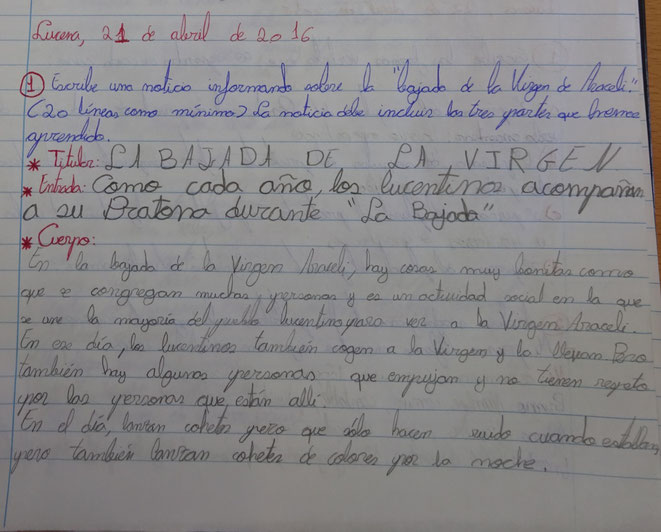 Lucena, 21 de abril de 2016
① Escribe una noticia informando sobre la "bajada de la Virgen de Araceli."
(20 líneas como mínimo) La noticia debe incluir las tres partes que hemos
aprendido.
* Titular: LA BAJADA DE LA VIRGEN
* Entrada: Como cada año, los lucentinos acompañan
a su Bratona durante "La Bajada"
* Cuerpo:
En la bajada de la Virgen Araceli, hay cosas muy bonitas como
que se congregan muchas personas y es un actividad social en la que
se une la mayoría del pueblo lucentino para ver a la Virgen Araceli.
En ese día, los lucentinos también cogen a la Virgen y la llevan
también hay algunas personas que empujan y no tienen respeto
por las personas que están allí.
En el día, lanzan cohetes pero que sólo hacen ruido cuando estallan,
pero también lanzan cohetes de colores por la noche.